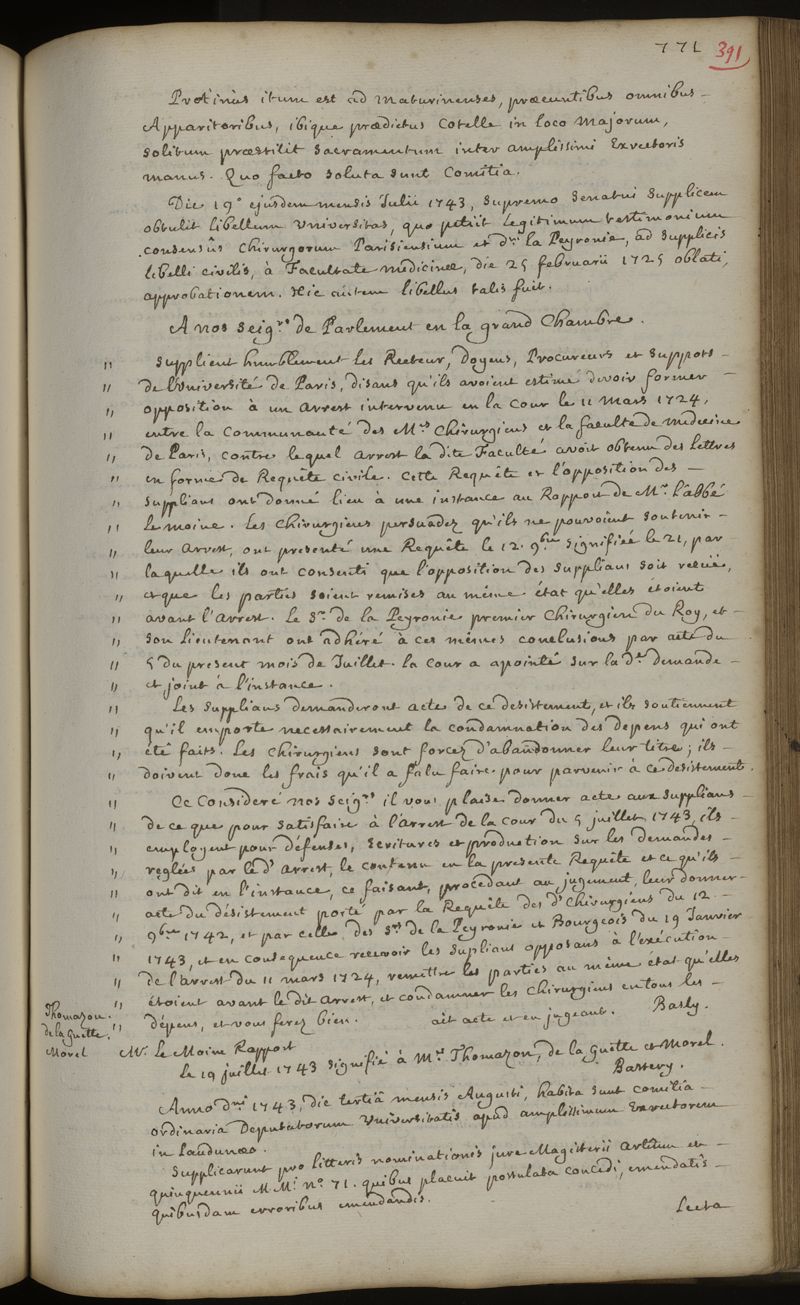 771 391
Protinùs itum est ad Maturinenses, præeuntibus omnibus
Apparitoribus, ibique prædictus Cotelle in loco Majorum,
solitum præstitit sacramentum inter amplissimi Exrectoris
manus. Quo facto soluta sunt Comitia.
Die 19ª ejusdem mensis Julii 1743, supremo Senatui Supplicem
obtulit libellum Universitas, quo petiit legitimum testimonium
consensûs Chirurgorum Parisiensium et d.ni la Peyronie, ad supplicis
libelli civilis, à Facultate medicinæ, die 25 februarii 1725 oblati,
approbationem. Hic autem libellus talis fuit.
A nos seig.rs de Parlement en la grand Chambre.
" Supplient humblement les Recteur, Doyens, Procureurs et Suppots
" de l'université de Paris, disans qu'ils avoient estimé devoir former
" opposition à un arrest intervenu en la Cour le 11 Mars 1724,
" entre la Communauté des M.es Chirurgiens et la faculté de medecine
" de Paris, contre lequel arrest la dite Faculté avoit obtenu des Lettres
" en forme de Requête civile. Cette Requête et l'opposition des
" supplians ont donné lieu à une instance au Rapport de M.r l'abbé
" le moine. Les Chirurgiens persuadez qu'ils ne pouvoient soutenir
" leur Arrest, ont presenté une Requête le 12. 9.bre signifiée le 21, par
" laquelle ils ont consenti que l'opposition des supplians soit reçüe,
" et que les parties soient remises au même état qu'elles étoient
" avant l'arrest. Le S.r de la Peyronie premier Chirurgien du Roy, et
" son Lieutenant ont adhéré à ces mêmes conclusions par acte du
" 5 du present mois de Juillet. la Cour a apointé sur la d.e demande
" et joint à l'instance.
" Les supplians demanderont acte de ce desistement, et ils soutiennent
" qu'il emporte necessairement la condamnation des depens qui ont
" été faits. Les Chirurgiens sont forcez d'abandonner leur titre; ils
" doivent donc les frais qu'il a falu faire pour parvenir à ce desistement.
" Ce Consideré nos seig.rs il vous plaise donner acte aux supplians
" de ce que pour satisfaire à l'arrest de la cour du 5 juillet 1743, ils
" employent pour défenses, Ecritures et production sur les demandes
" reglées par le d.t arrest, le contenu en la presente Requête et ce qu'ils
" ont dit en l'instance, ce faisant, procedant au jugement, leur donner
" acte du désistement porté par la Requête des d.ts Chirurgiens du 12
" 9.bre 1742, et par celle des S.rs de la Peyronie et Bourgeois du 19 Janvier
" 1743, et en consequence recevoir les suplians opposans à l'exécution
" de l'arrest du 11 mars 1724, remettre les parties au même état qu'elles
" étoient avant le dit arrest, et condamner les Chirurgiens en tous les
" dépens, et vous ferez bien. ait acte et en jugeant. Basly.
Thomazon.
de la guette.
Morel
M.r Le Moine Rapport
Le 19 juillet 1743 signifié à M.es Thomazon, de la Guette et Morel.
Anno D.ni 1743, die tertiâ mensis Augusti, habita sunt comitia
ordinaria Deputatorum Universitatis apud amplissimum Exrectorem
in Laudunæo.
Supplicarunt pro litteris nominationis jure Magisterii artium et
quinquennii M.M. n.o 71. quibus placuit postulata concedi, emendatis
quibusdam erroribus emendandis.
Lecta